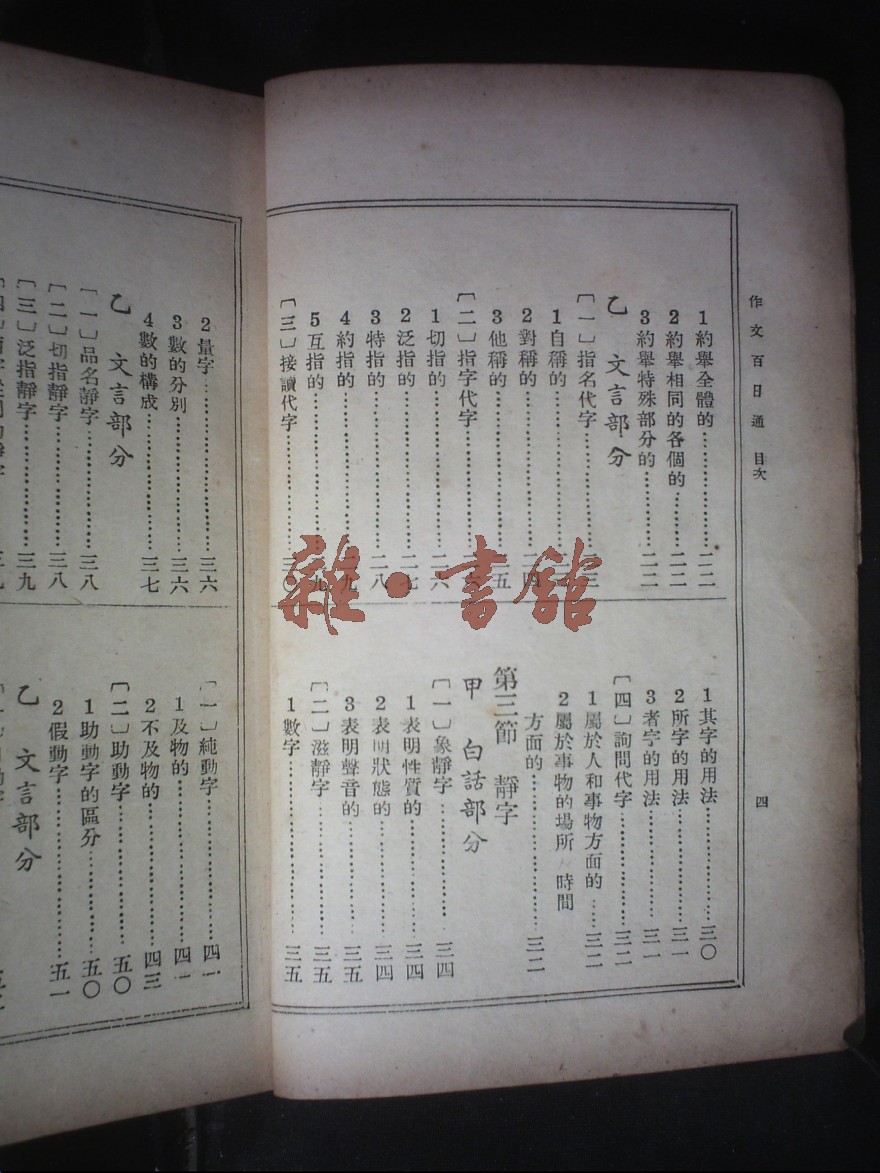 作文百日通 目次
四
1約舉全體的……………二二
2約舉相同的各個的……二二
3約舉特殊部分的………二二
乙 文言部分
〔一〕指名代字……………三
1自稱的
2對稱的……………四
3他稱的……………五
〔二〕指字代字
1切指的……………二六
2泛指的……………二七
3特指的……………二八
4約指的……………九
5互指的……………九
〔三〕接讀代字……………三〇
1其字的用法……………三〇
2所字的用法……………三一
3者字的用法……………三一
〔四〕詢問代字……………三二
1屬於人和事物方面的……三二
2屬於事物的場所 時間
方面的……………三二
第三節 靜字
甲 白話部分
〔一〕象靜字……………三四
1表明性質的……………三四
2表明狀態的……………三四
3表明聲音的……………三五
〔二〕滋靜字……………三五
1數字……………三五
2量字……………三六
3數的分別……………三六
4數的構成……………三七
乙 文言部分
〔一〕品名靜字……………三八
〔二〕切指靜字……………三八
〔三〕泛指靜字……………三九
〔一〕純動字……………四一
1及物的……………四一
2不及物的……………四三
〔二〕助動字……………五〇
1助動字的區分……………五〇
2假動字……………五一
乙 文言部分
雜·書館